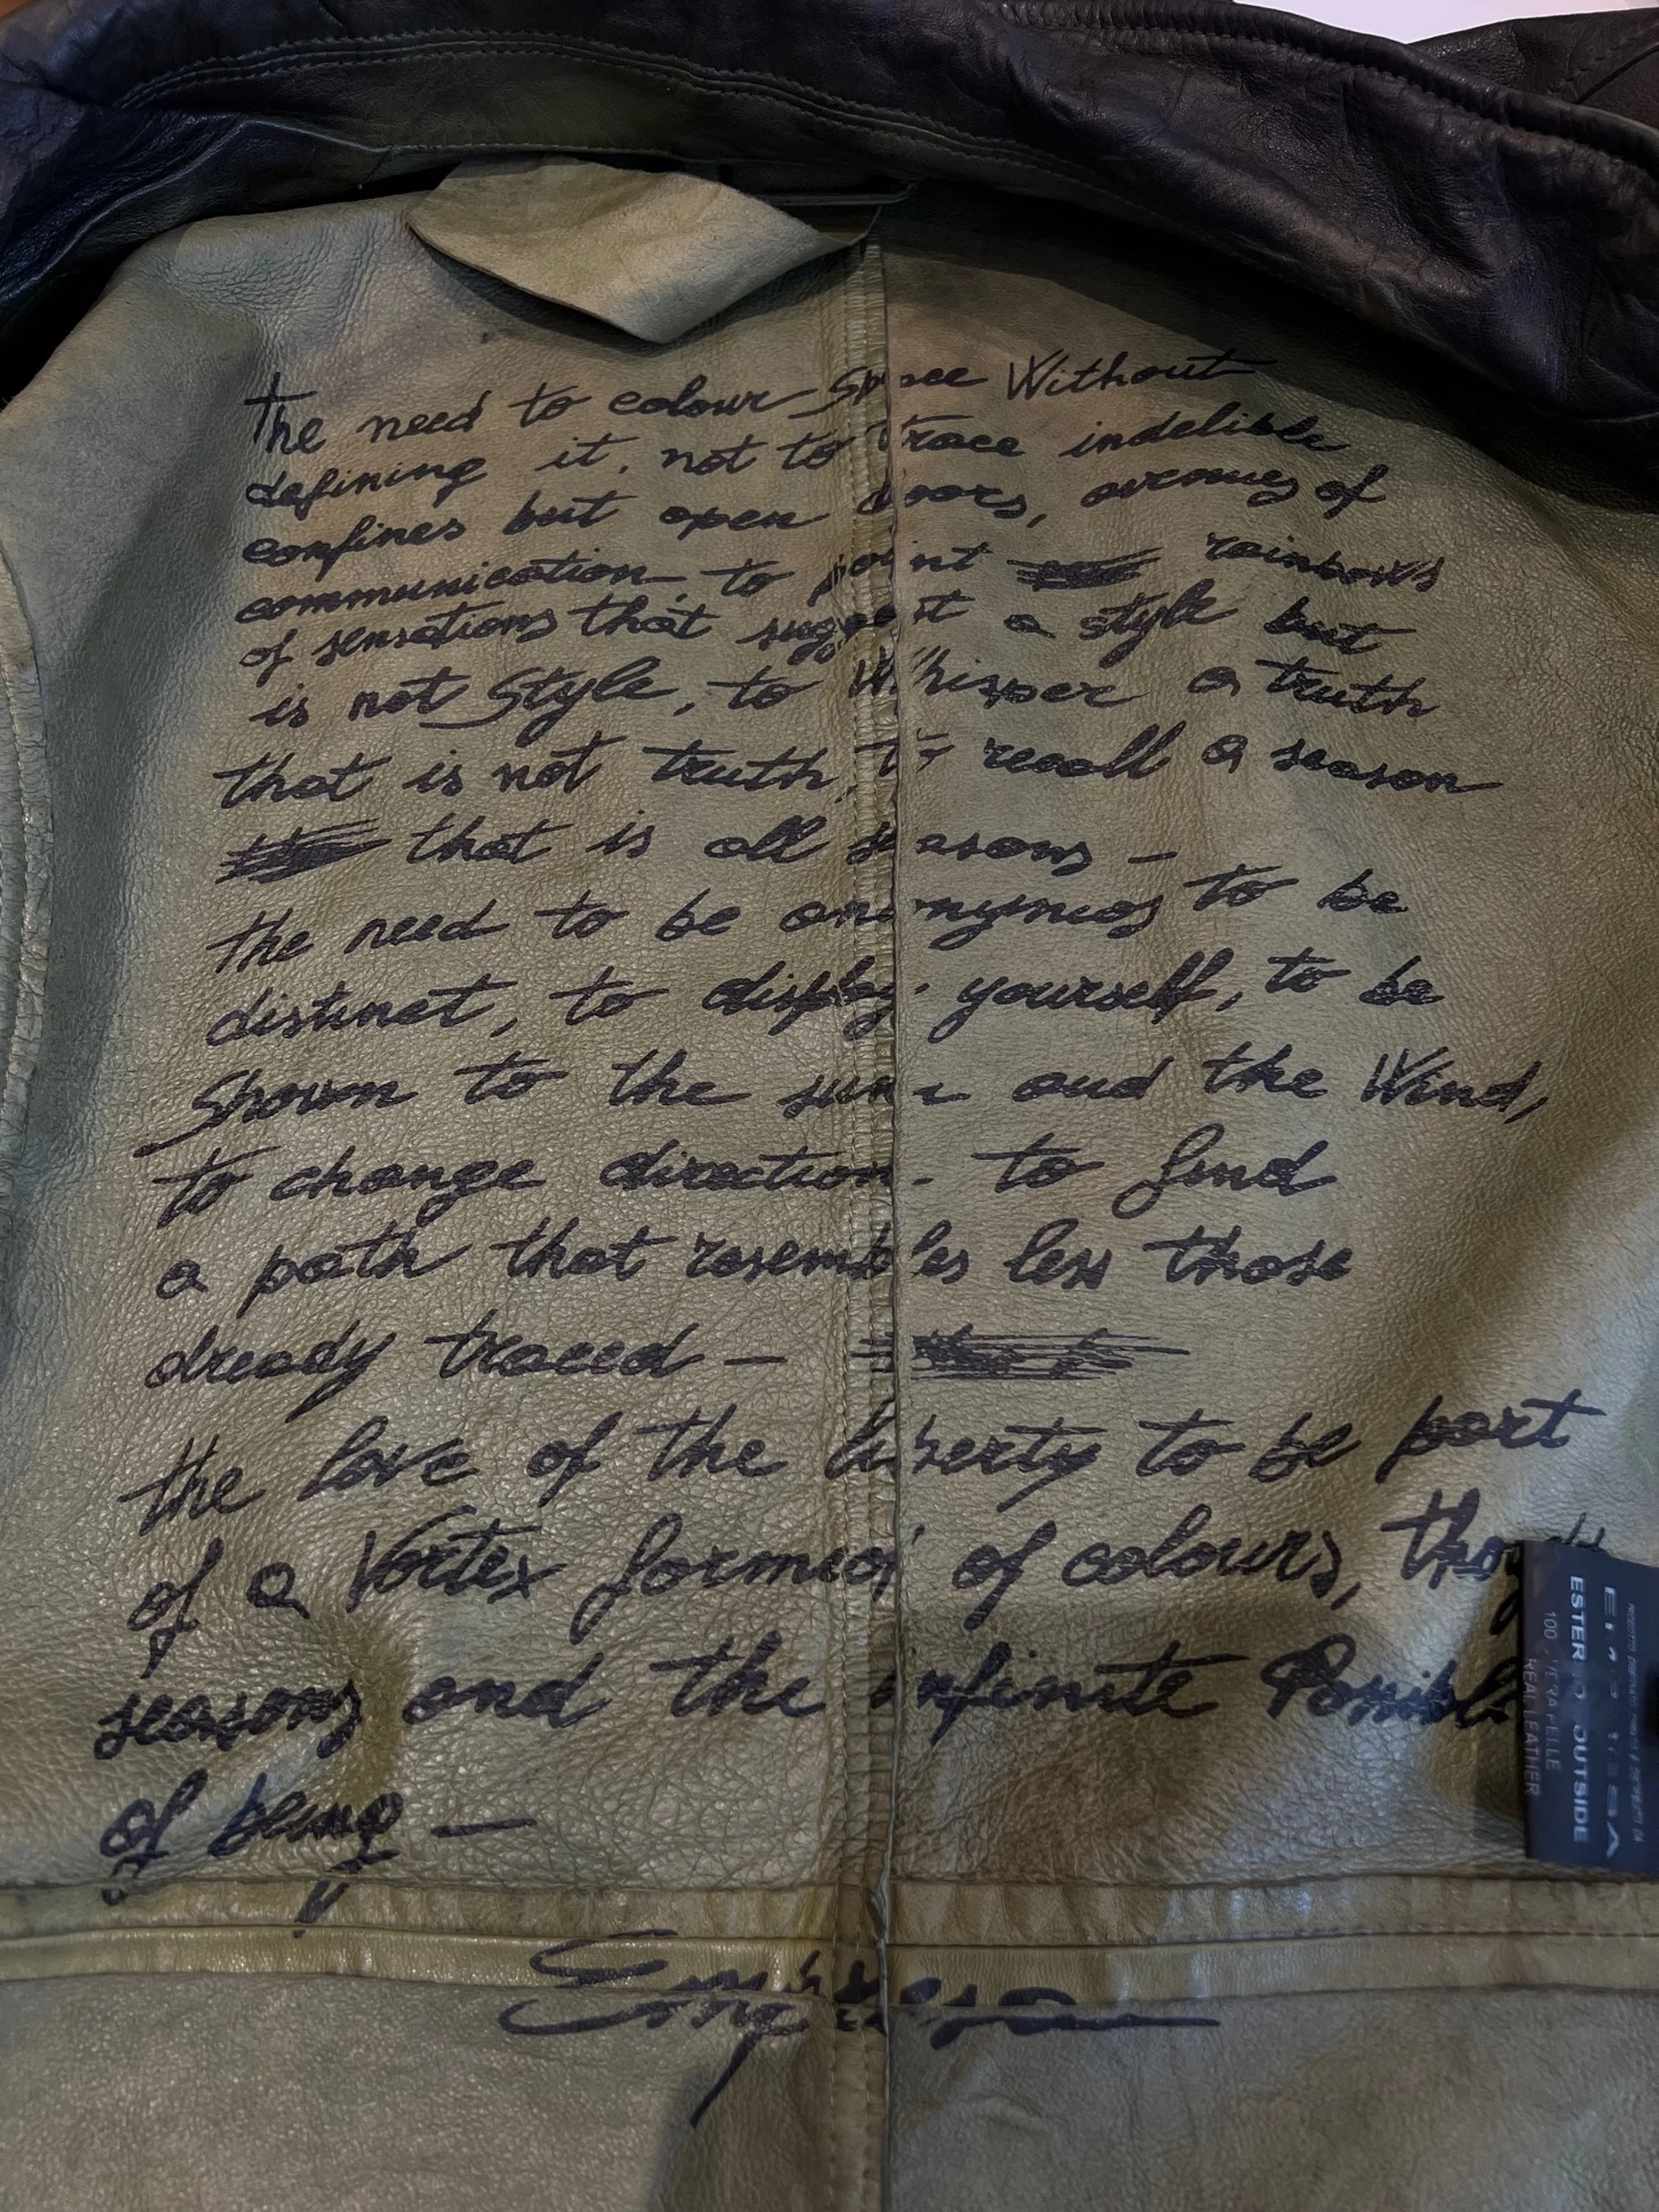 The need to colour Space Without
defining it, not to trace indelible
confines but open doors, avenues of
communication, to paint rainbows
of sensations that suggest a style but
is not Style, to Whisper a truth
that is not truth, to recall a season
that is all seasons —
the need to be anonymos to be
distinct, to display yourself, to be
Shown to the sun and the Wind,
to change direction, to find
a path that resembles less those
already traced —
the love of the liberty to be part
of a Vortex formed of colours,
seasons and the infinite
of being —
ESTERNO OUTSIDE
100 VERA PELLE
REAL LEATHER